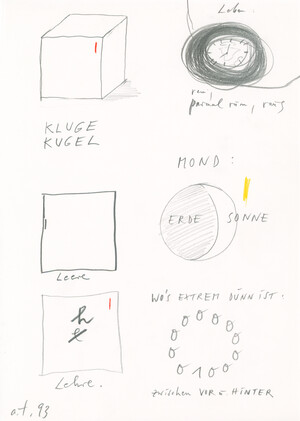 Leben.
KLUGE
KUGEL
MOND:
ERDE SONNE
Leere
h
e
Lehre.
WO'S EXTREM DÜNN IST:
zwischen VOR & HINTER
a.t. 93